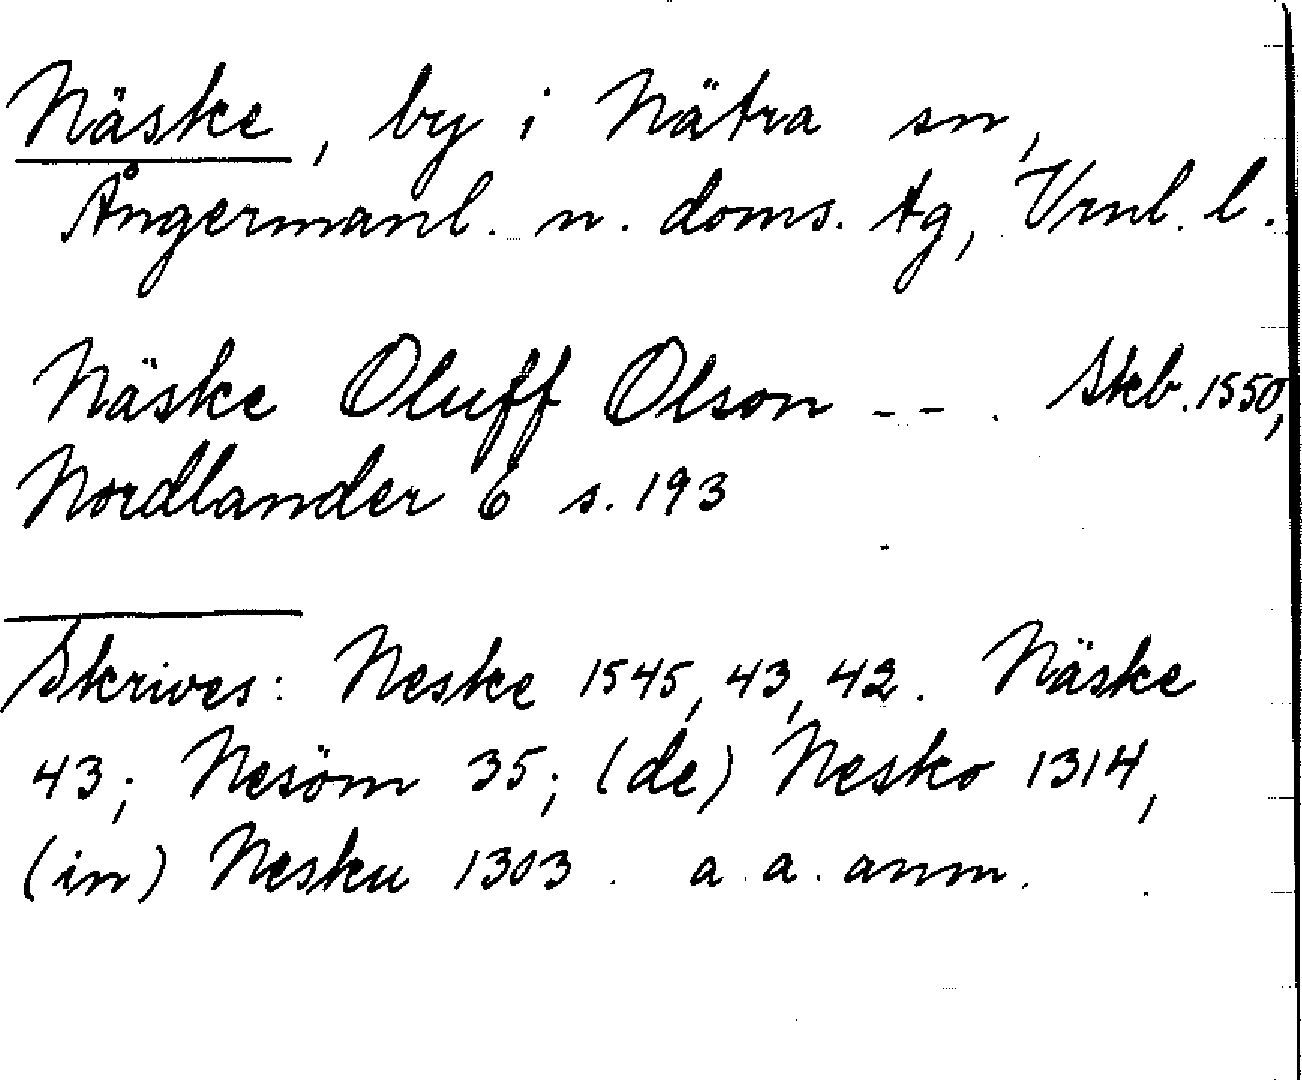 Näske, by i Nätra sn,
Ångermanl. n. doms. tg, Vrnl. l.
Näske Oluff Olson -- . Skb. 1550,
Nordlander 6 s. 193
Skrives: Neske 1545, 43, 42. Näske
43; Nesöm 35; (de) Nesko 1314,
(in) Nesku 1303. a. a. anm.